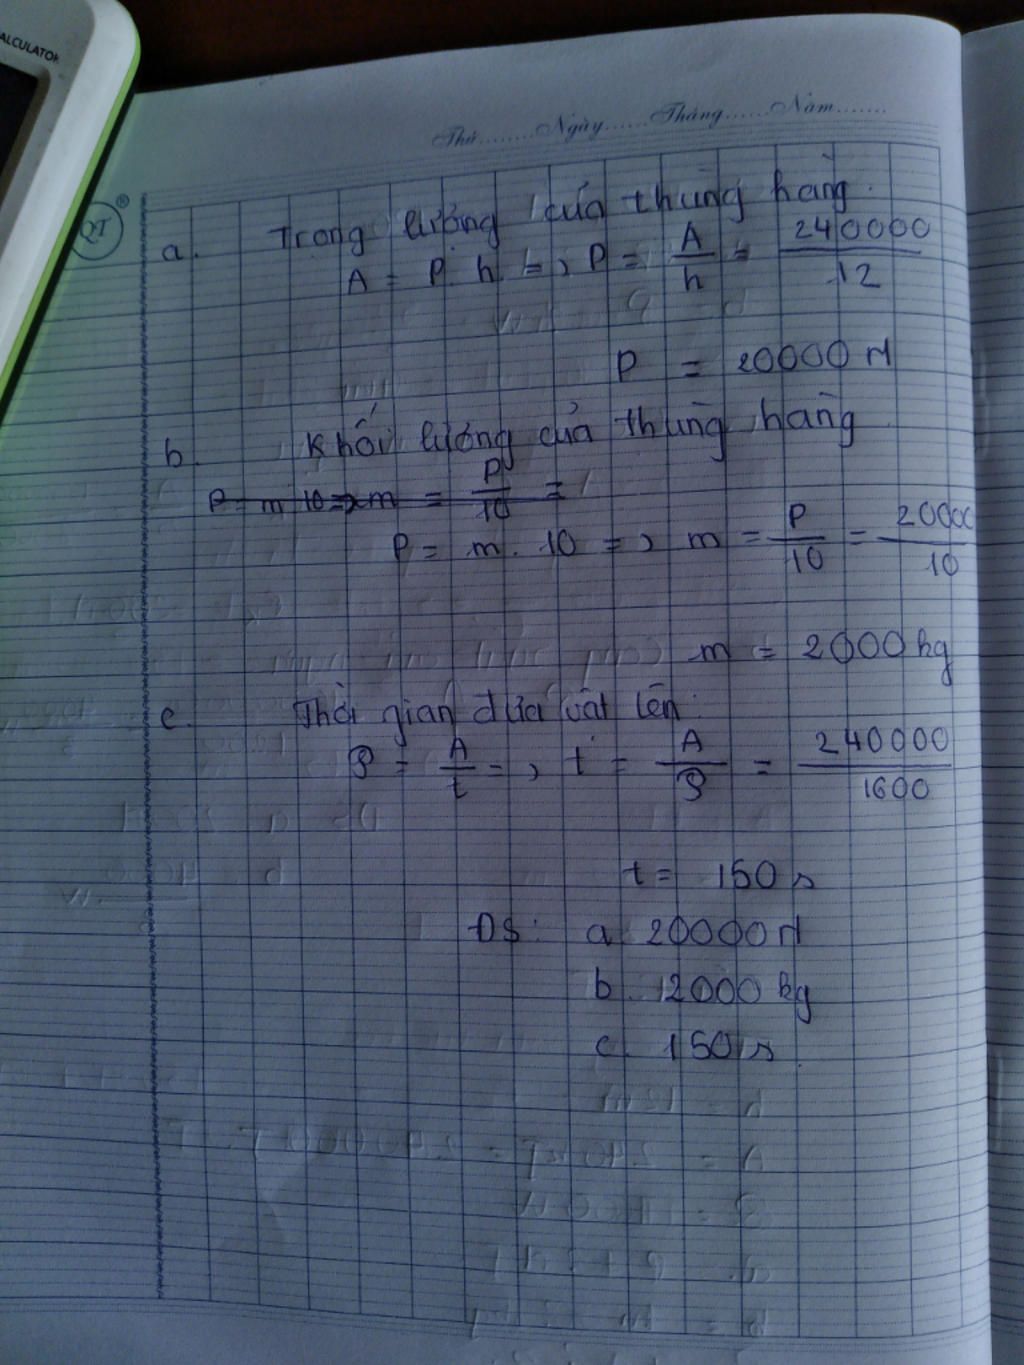 ALCULATOR
Thứ........Ngày......Tháng......Năm.......
QT ®
a. Trọng lượng của thùng hàng.
A = P. h => P = A/h = 240000/12
P = 20000 N
b. Khối lượng của thùng hàng
P = m 10 => m = P/10 =
P = m. 10 => m = P/10 = 20000/10
m = 2000 kg
c. Thời gian đưa vật lên:
P = A/t => t = A/P = 240000/1600
t = 150 s
ĐS: a 20000 N
b. 2000 kg
c. 150 s